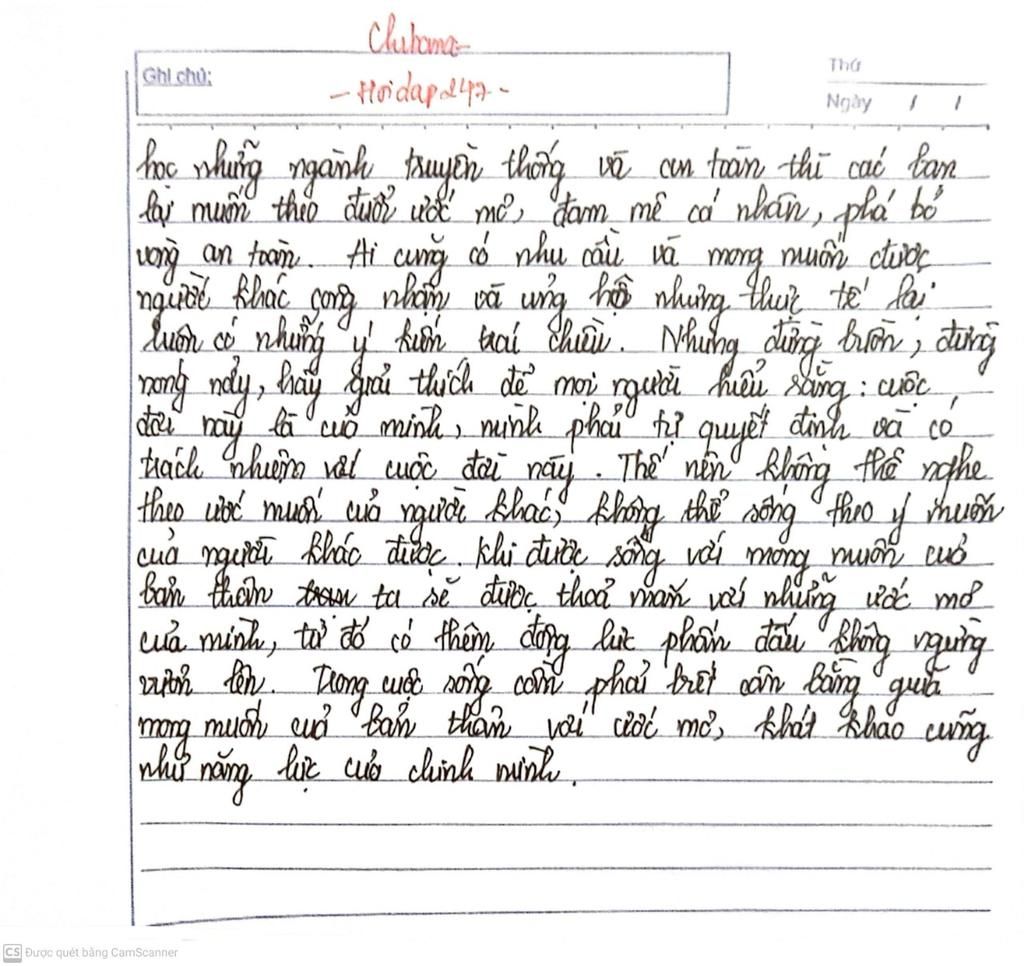 Ghi chú:
- Hoidap247 -
Thứ
Ngày / /
học những ngành truyền thống và an toàn thì các bạn
lại muốn theo đuổi ước mơ, đam mê cá nhân, phá bỏ
vòng an toàn. Ai cũng có nhu cầu và mong muốn được
người khác công nhận và ủng hộ nhưng thực tế lại
luôn có những ý kiến trái chiều. Nhưng đừng buồn, đừng
nóng nảy, hãy giải thích để mọi người hiểu rằng: cuộc
đời này là của mình, mình phải tự quyết định và có
trách nhiệm với cuộc đời này. Thế nên không thể nghe
theo ước muốn của người khác, không thể sống theo ý muốn
của người khác được. Khi được sống với mong muốn của
bản thân ta sẽ được thoả mãn với những ước mơ
của mình, từ đó có thêm động lực phấn đấu không ngừng
vươn lên. Trong cuộc sống cần phải biết cân bằng giữa
mong muốn của bản thân với ước mơ, khát khao cũng
như năng lực của chính mình.
CS Được quét bằng CamScanner